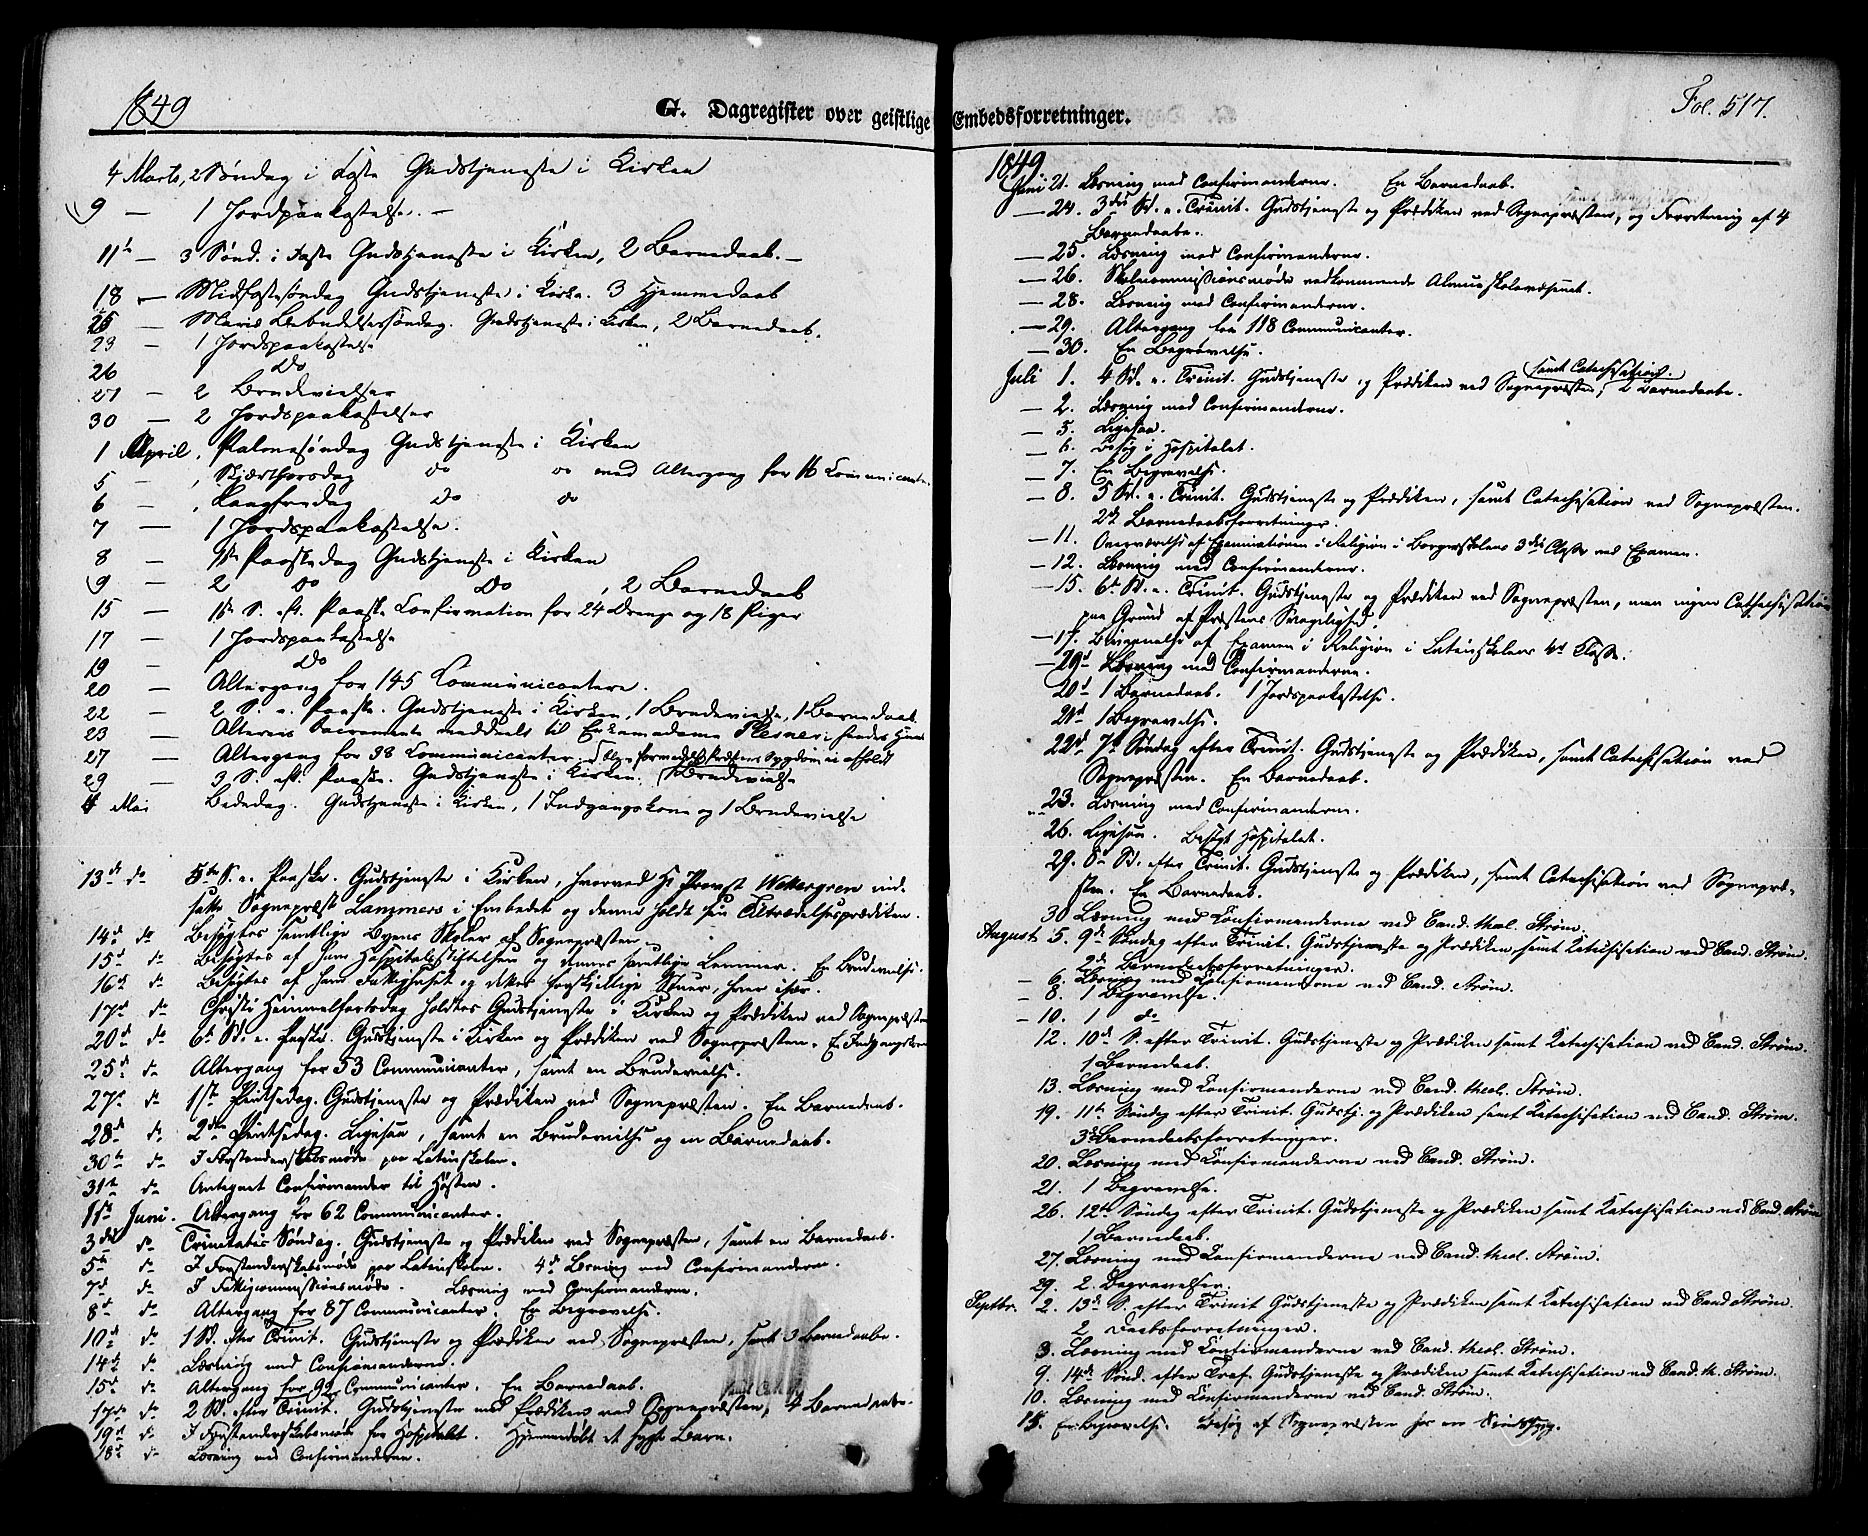 1849
G. Dagregister over geistlige Embedsforretninger.
Fol. 517.
4 Marts, 2 Søndag i Faste Gudstjeneste i Kirken
9 — 1 Jordpaakastelse. —
11te — 3 Sønd. i Faste Gudstjeneste i Kirken, 2 Barnedaab. —
18 — Midfastesøndag Gudstjeneste i Kirke. 3 Hjemmedaab
25 — Mariæ Bebudelsessøndag. Gudstjeneste i Kirken, 2 Barnedaab.
23 — 1 Jordspaakastelse
26 1 do
27 — 2 Brudevielser
30 — 2 Jordspaakastelser
1 April, Palmesøndag Gudstjeneste i Kirken
5 — , Skjærthorsdag do do med Altergang for 16 Communicanter
6 — , Langfredag do do
7 — 1 Jordspaakastelse.
8 — 1ste Paaskedag Gudstjeneste i Kirken
9 — 2 do do, 2 Barnedaab
15 — 1ste S. eft. Paaske Confirmation for 24 Drenge og 18 Piger
17 — 1 Jordspaakastelse
19 — 1 do
20 — Altergang for 145 Communicantere.
22 — 2 S. e. Paaske. Gudstjeneste i Kirken, 1 Brudevielse, 1 Barnedaab.
23 — Alterets Sacramente meddeelt til Enkemadame Plesner i hendes Huus
27 — Altergang for 98 Communicanter
29 — 3 S. eft. Paaske. Gudstjeneste i Kirken. 1 Brudevielse
4 Mai Bededag. Gudstjeneste i Kirken, 1 Indgangskone og 1 Brudevielse
13de do 5te S. e. Paaske. Gudstjeneste i Kirken, hvorved Hr Provst Wettergren ind-
satte Sognepræst Lammers i Embedet og denne holdt sin Tiltrædelsesprædiken.
14d do Besøgtes samtlige Byens Skoler af Sognepræsten.
15d do Besøgtes af ham Hospitalsstiftelsen og dennes samtlige Lemmer. En Brudevielse.
16d do Besøgtes af ham Fattighuset og dettes forskjellige Stuer, hver især.
17d do Christi Himmelfartsdag holdtes Gudstjeneste i Kirken og Prædiken ved Sognepræsten
20d do 6te Sd. e. Paaske. Gudstjeneste i Kirken og Prædiken ved Sognepræsten. E. Indgangskone
25d do Altergang for 53 Communicanter, samt en Brudevielse.
27d do 1ste Pintsedag. Gudstjeneste og Prædiken ved Sognepræsten. En Barnedaab.
28d do 2den Pintsedag. Ligesaa, samt en Brudevielse og en Barnedaab.
30te do I Forstanderskabsmøde paa Latinskolen.
31te do Antegnet Confirmander til Høsten.
1ste Juni. Altergang for 62 Communicanter.
3die do Trinitatis Søndag. Gudstjeneste og Prædiken ved Sognepræsten, samt en Barnedaab.
5te do I Forstanderskabsmøde paa Latinskolen. 4de Læsning med Confirmanderne.
7d do I Fattigcommissionsmøde. Læsning med Confirmanderne.
8d do Altergang for 87 Communicanter. En Begravelse.
10d do 1 Sd. efter Trinit. Gudstjeneste og Prædiken ved Sognepræsten, samt 3 Barnedaabe.
14de do Læsning med Confirmanderne.
15d do Altergang for 92 Communicanter. En Barnedaab.
17de do 2 Sd. efter Trinit. Gudstjeneste med Prædiken ved Sognepræsten, 4 Barnedaabe.
19d do I Forstanderskabsmøde for Hospitalet. Hjemmedøbt et sygt Barn.
18d do Læsning med Confirmanderne.
1849
Juni 21. Læsning med Confirmanderne. En Barnedaab.
— 24. 3die Sd. e. Trinit. Gudstjeneste og Prædiken ved Sognepræsten, og Forretning af 4
Barnedaabe.
— 25. Læsning med Confirmanderne.
— 26. Skolecommissionsmøde vedkommende Almueskolevæsenet.
— 28. Læsning med Confirmanderne.
— 29. Altergang for 118 Communicanter.
— 30. En Begravelse.
samt Catechisation.
Juli 1. 4 Sd. e. Trinit. Gudstjeneste og Prædiken ved Sognepræsten, 2 Barnedaabe.
— 2. Læsning med Confirmanderne.
— 5. Ligesaa.
— 6. Besøg i Hospitalet.
— 7. En Begravelse.
— 8. 5 Sd. e. Trinit. Gudstjeneste og Prædiken, samt Catechisation ved Sognepræsten.
2de Barnedaabsforretninger.
— 11. Overværelse af Examinationen i Religion i Borgerskolens 3die Classe ved Examen.
— 12. Læsning med Confirmanderne.
— 15. 6te Sd. e. Trinit. Gudstjeneste og Prædiken ved Sognepræsten, men ingen Cathechisation
paa Grund af Præstens Svagelighed.
— 17. Bivaanelse af Examen i Religion i Latinskolens 4de Classe.
— 19d Læsning med Confirmanderne.
20d 1 Barnedaab. 1 Jordspaakastelse.
21d 1 Begravelse.
22d 7de Søndag efter Trinit. Gudstjeneste og Prædiken, samt Catechisation ved
Sognepræsten. En Barnedaab.
23. Læsning med Confirmanderne.
26. Ligesaa. Besøgt Hospitalet.
29. 8de Sd. efter Trinit. Gudstjeneste og Prædiken, samt Catechisation ved Sognepræ-
sten. En Barnedaab.
30 Læsning med Confirmanderne ved Cand. theol. Strøm.
August 5. 9de Søndag efter Trinit. Gudstjeneste og Prædiken samt Katechisation ved Cand. Strøm.
2de Barnedaabsforretninger.
— 6. Læsning med Confirmanderne ved Cand. Strøm.
— 8. 1 Begravelse.
— 10. 1 do
12. 10de S. efter Trinit. Gudstjeneste og Prædiken samt Katechisation ved Cand. Strøm.
1 Barnedaab.
13. Læsning med Konfirmanderne ved Cand. theol. Strøm.
19. 11te Søndag efter Trinit. Gudstj. og Prædiken samt Katechisation ved Cand. Strøm.
3 Barnedaabsforretninger.
20. Læsning med Konfirmanderne ved Cand. Strøm.
21. 1 Begravelse.
26. 12te Søndag efter Trinit. Gudstjeneste og Prædiken samt Katechisation ved Cand. Strøm
1 Barnedaab.
27. Læsning med Konfirmanderne ved Cand. theol. Strøm.
29. 2 Begravelser.
Septbr. 2. 13de S. efter Trinit Gudstjeneste og Prædiken samt Katechisation ved Cand Strøm.
2 Daabsforretninger.
3. Læsning med Konfirmanderne ved Cand. theol. Strøm.
9. 14de Sønd. efter Tref. Gudstjeneste og Prædiken samt Katechisation ved Cand. th. Strøm.
10. Læsning med Konfirmanderne ved Cand. Strøm.
15. En Begravelse. Besøg af Sognepræsten hos en Sindssyg.